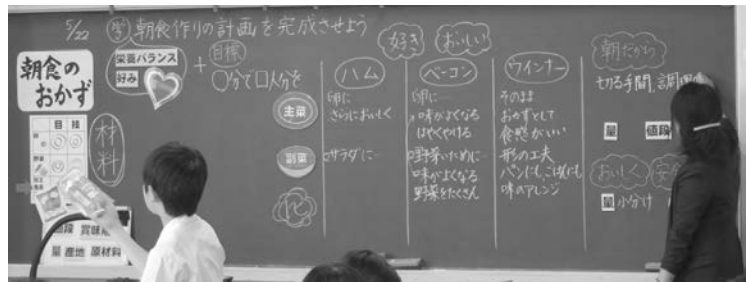 5/22 学 朝食作りの計画を完成させよう
朝食の
おかず
栄養バランス
好み
+
目標
○分で□人分を
好き
おいしい
目 技
卵
野菜
材料
値段 賞味期
量 産地 原材料
主菜
副菜
ハム
卵に
さらにおいしく
サラダに…
ベーコン
卵に…
味がよくなる
はやくやける
野菜いために…
味がよくなる
野菜をたくさん
ウインナー
そのまま
おかずとして
食感がいい
形の工夫
パンにもごはんにも
味のアレンジ
朝だから
切る手間、調理
量 値段
おいしく 安
量 小分け